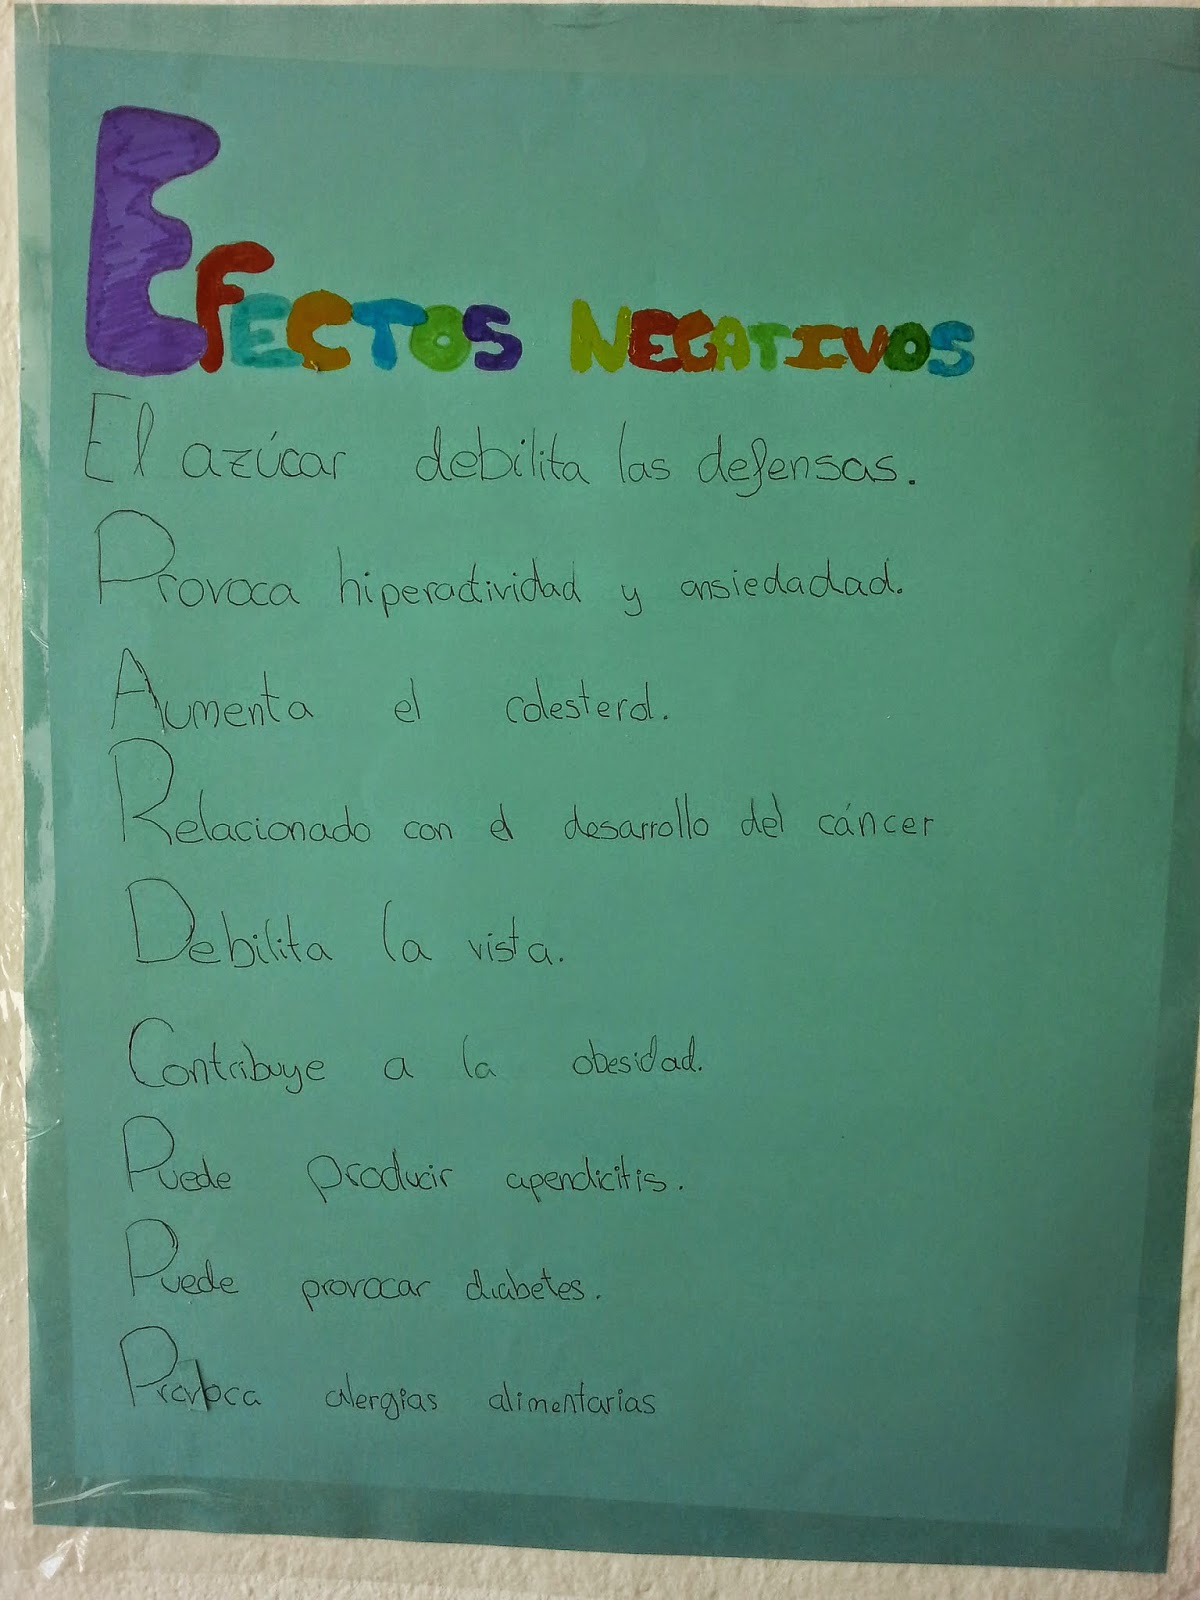 EFECTOS NEGATIVOS
El azúcar debilita las defensas.
Provoca hiperactividad y ansiedadad.
Aumenta el colesterol.
Relacionado con el desarrollo del cáncer
Debilita la vista.
Contribuye a la obesidad.
Puede producir apendicitis.
Puede provocar diabetes.
Provoca alergias alimentarias